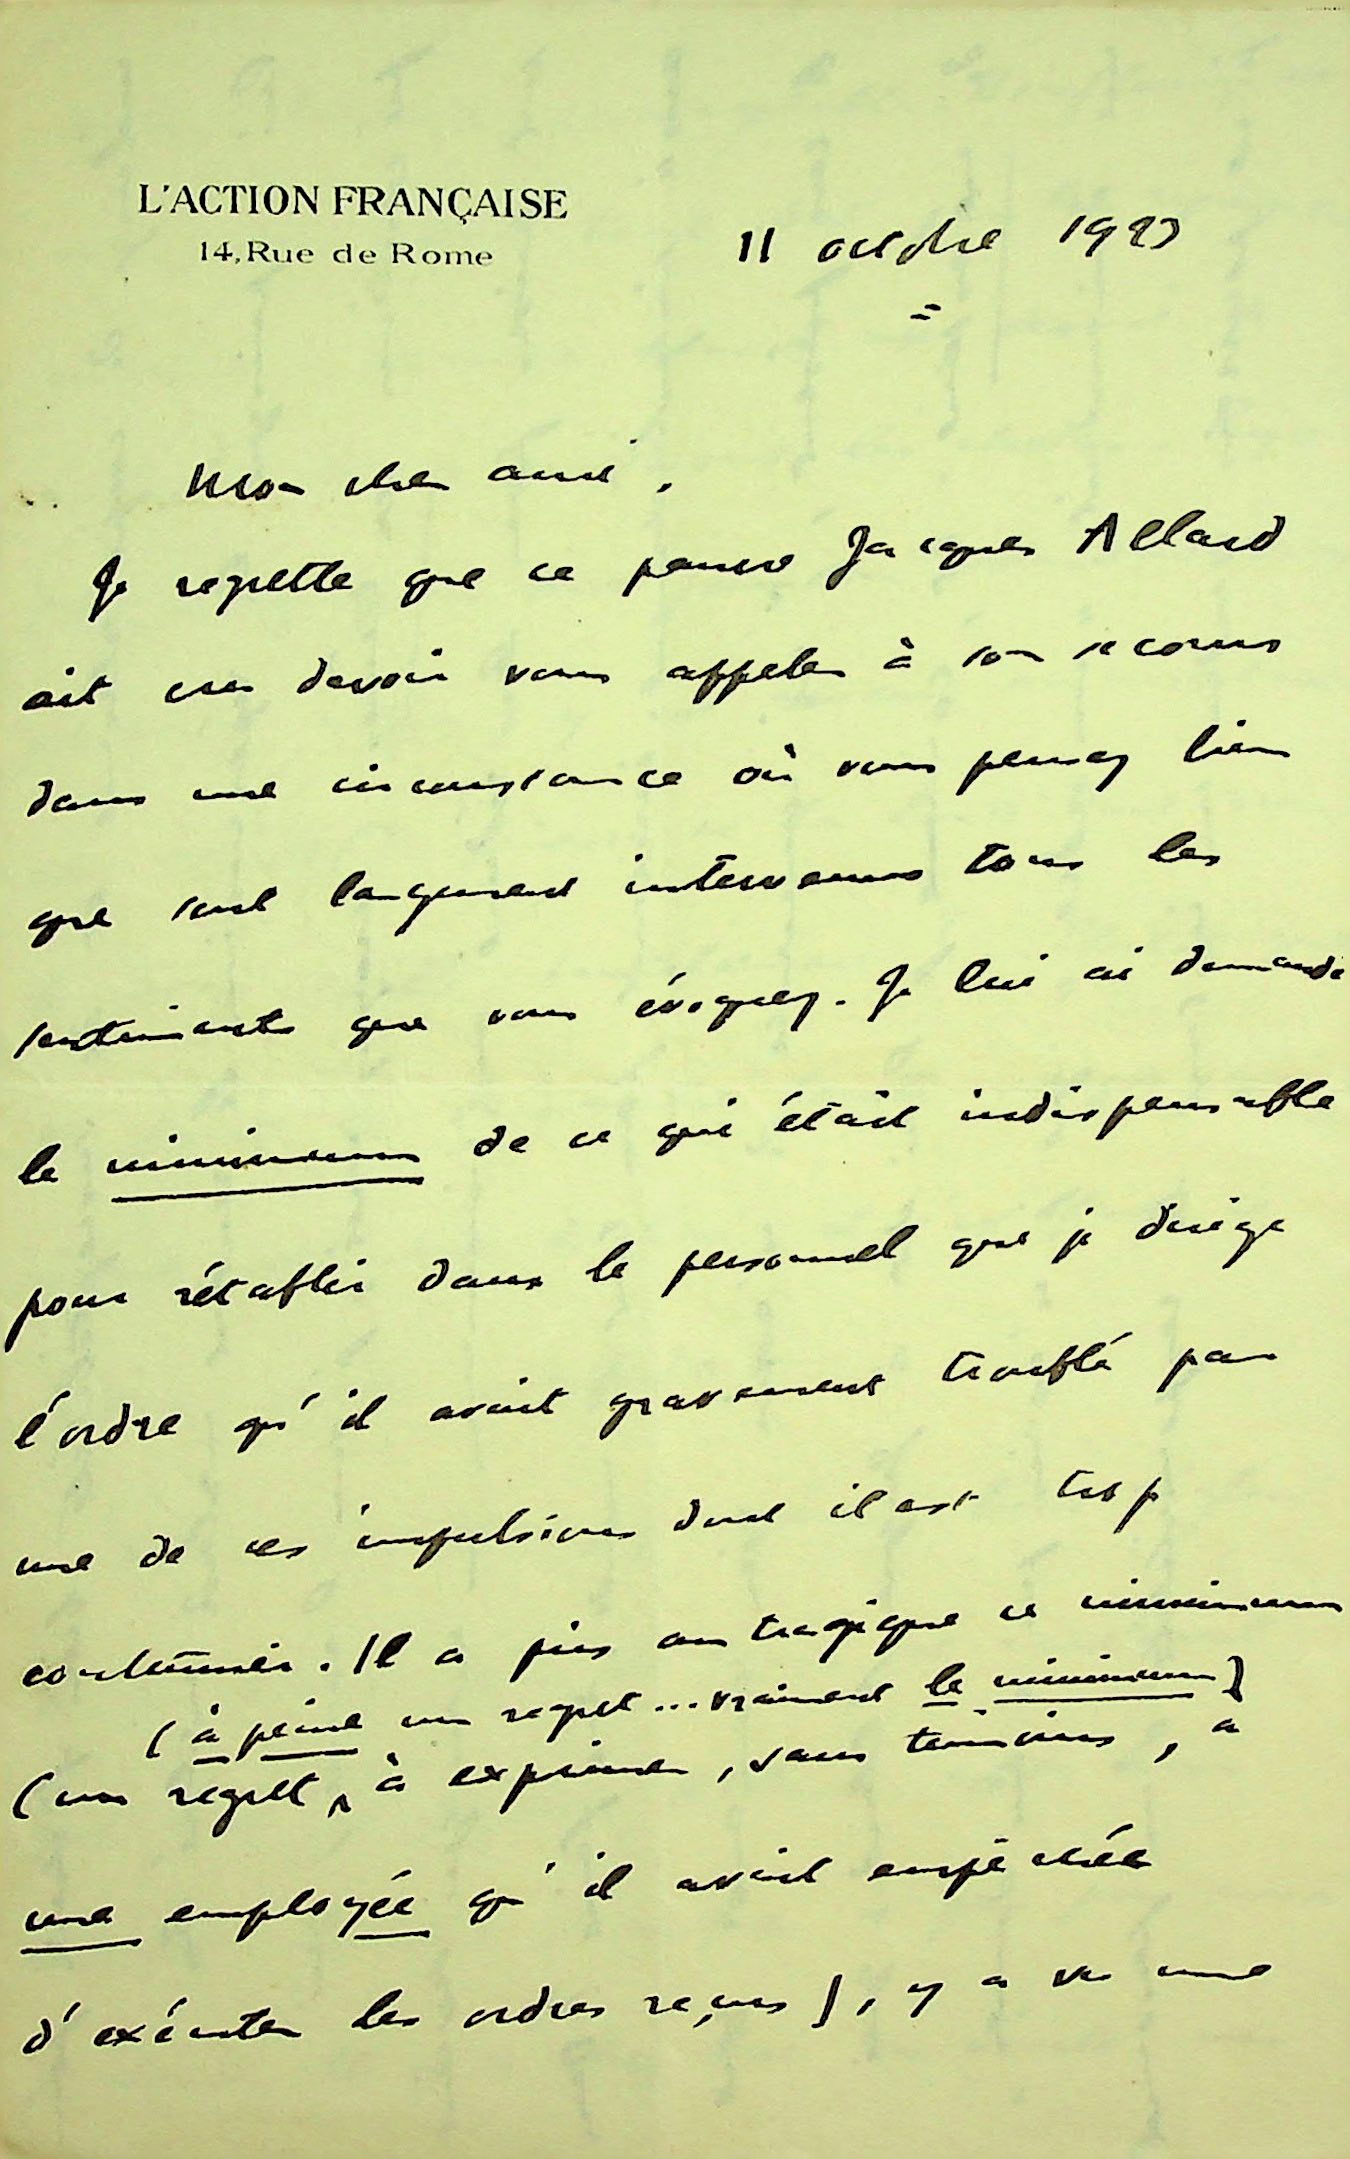 L'ACTION FRANÇAISE
14, Rue de Rome
11 octobre 1923
Mon cher ami,
Je regrette que ce pauvre Jacques Allard
ait cru devoir vous appeler à son secours
dans une circonstance où vous pensez bien
que sont largement intervenus tous les
sentiments que vous évoquez. Je lui ai demandé
le minimum de ce qui était indispensable
pour rétablir dans le personnel que je dirige
l'ordre qu'il avait gravement troublé par
une de ces impulsions dont il est trop
coutumier. Il a pris au tragique ce minimum
(à peine un regret... vraiment le minimum)
(un regret, à exprimer, sans témoins, à
une employée qu'il avait empêchée
d'exécuter les ordres reçus), y a vu une